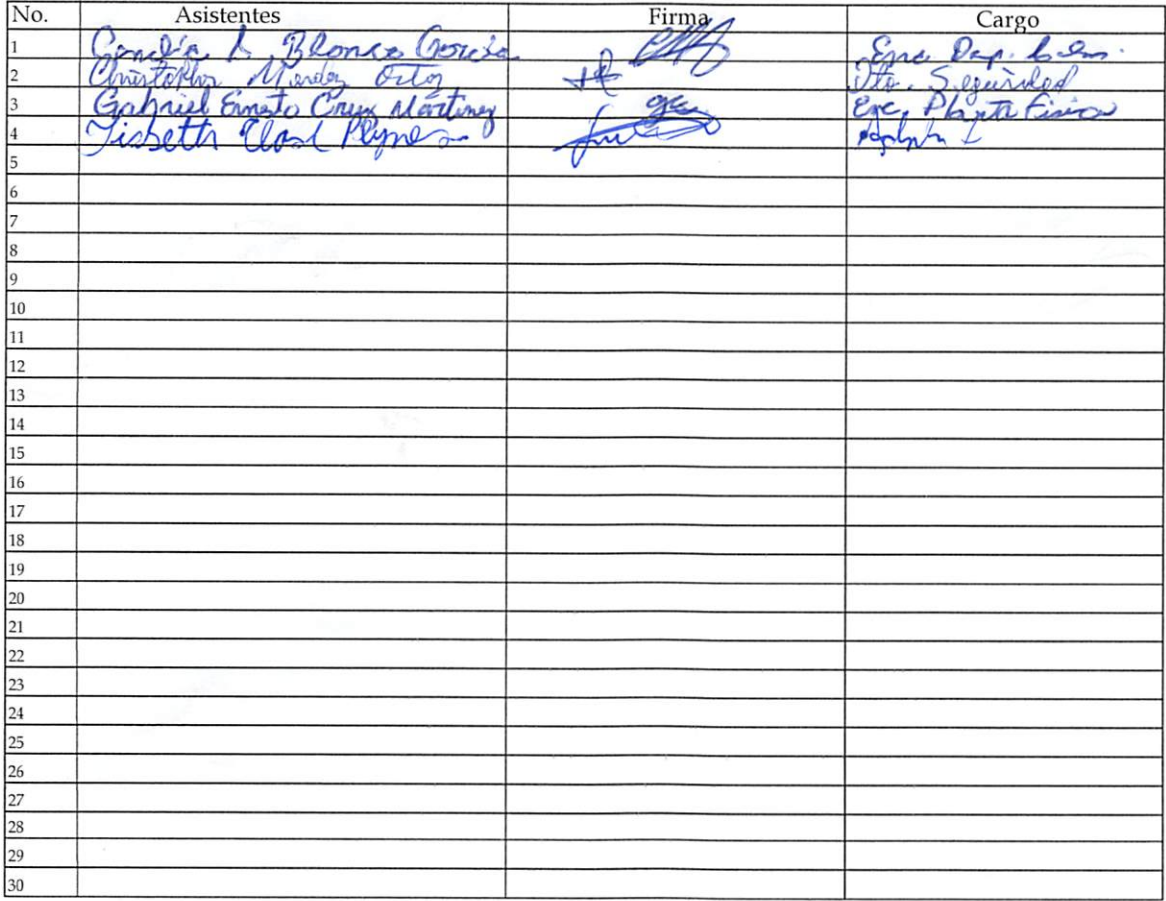 No. Asistentes Firma Cargo
1 Blanco García Enc. Dep.
2 Christopher Mendez Ortiz Seguridad
3 Gabriel Ernesto Cruz Martinez Enc. Planta Física
4 Lisbeth
5
6
7
8
9
10
11
12
13
14
15
16
17
18
19
20
21
22
23
24
25
26
27
28
29
30